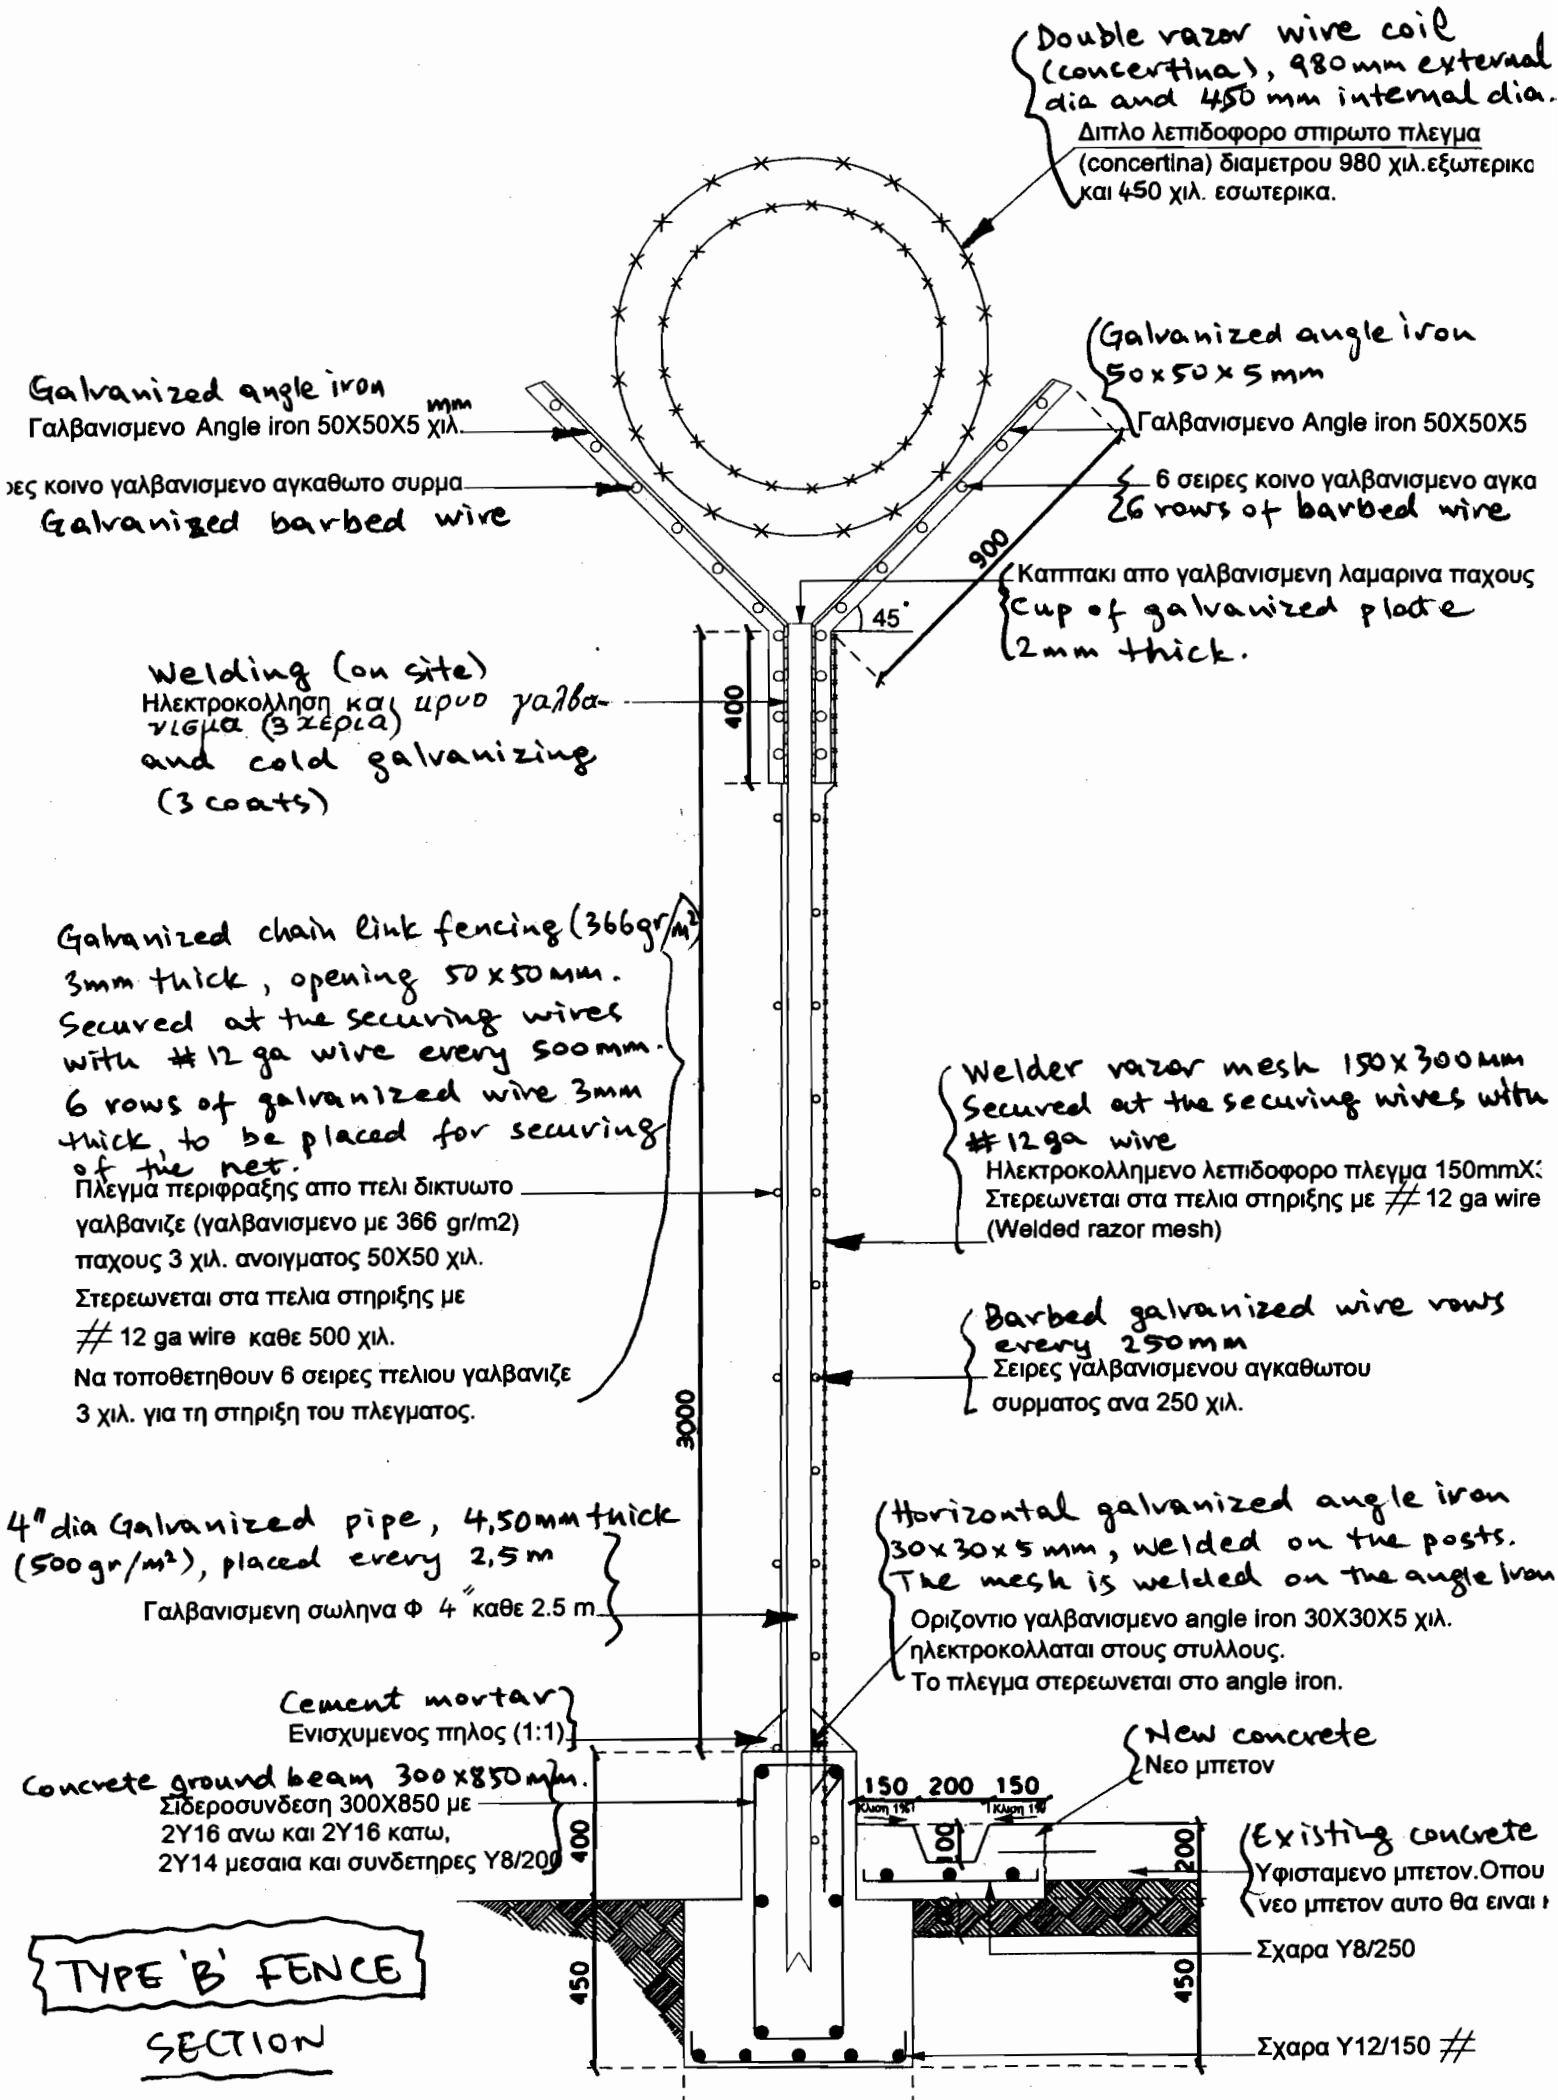 Double razor wire coil
(concertina), 980mm external
dia and 450 mm internal dia.
Διπλο λεπιδοφορο σπιρωτο πλεγμα
(concertina) διαμετρου 980 χιλ.εξωτερικα
και 450 χιλ. εσωτερικα.
Galvanized angle iron
50x50x5mm
Γαλβανισμενο Angle iron 50X50X5
Galvanized angle iron
mm
Γαλβανισμενο Angle iron 50X50X5 χιλ.
ρες κοινο γαλβανισμενο αγκαθωτο συρμα
Galvanized barbed wire
6 σειρες κοινο γαλβανισμενο αγκα
6 rows of barbed wire
900
Καππακι απο γαλβανισμενη λαμαρινα παχους
Cup of galvanized plate
2mm thick.
45°
400
Welding (on site)
Ηλεκτροκολληση και κρυο γαλβα-
νισμα (3 χερια)
and cold galvanizing
(3 coats)
Galvanized chain link fencing (366gr/m²)
3mm thick, opening 50x50mm.
Secured at the securing wires
with #12 ga wire every 500mm.
6 rows of galvanized wire 3mm
thick, to be placed for securing
of the net.
Πλεγμα περιφραξης απο πελι δικτυωτο
γαλβανιζε (γαλβανισμενο με 366 gr/m2)
παχους 3 χιλ. ανοιγματος 50X50 χιλ.
Στερεωνεται στα πελια στηριξης με
# 12 ga wire καθε 500 χιλ.
Να τοποθετηθουν 6 σειρες πελιου γαλβανιζε
3 χιλ. για τη στηριξη του πλεγματος.
3000
Welder razor mesh 150x300mm
Secured at the securing wires with
#12ga wire
Ηλεκτροκολλημενο λεπιδοφορο πλεγμα 150mmX
Στερεωνεται στα πελια στηριξης με # 12 ga wire
(Welded razor mesh)
Barbed galvanized wire rows
every 250mm
Σειρες γαλβανισμενου αγκαθωτου
συρματος ανα 250 χιλ.
4" dia Galvanized pipe, 4,50mm thick
(500gr/m²), placed every 2,5m
Γαλβανισμενη σωληνα Φ 4" καθε 2.5 m
Horizontal galvanized angle iron
30x30x5mm, welded on the posts.
The mesh is welded on the angle iron
Οριζοντιο γαλβανισμενο angle iron 30X30X5 χιλ.
ηλεκτροκολλαται στους στυλλους.
Το πλεγμα στερεωνεται στο angle iron.
Cement mortar
Ενισχυμενος πηλος (1:1)
New concrete
Νεο μπετον
Concrete ground beam 300x850mm.
Σιδεροσυνδεση 300X850 με
2Y16 ανω και 2Y16 κατω,
2Y14 μεσαια και συνδετηρες Y8/200
400
150 200 150
Κλιση 1% Κλιση 1%
100
200
Existing concrete
Υφισταμενο μπετον.Οπου
νεο μπετον αυτο θα ειναι
Σχαρα Y8/250
450
450
Σχαρα Y12/150 #
TYPE 'B' FENCE
SECTION